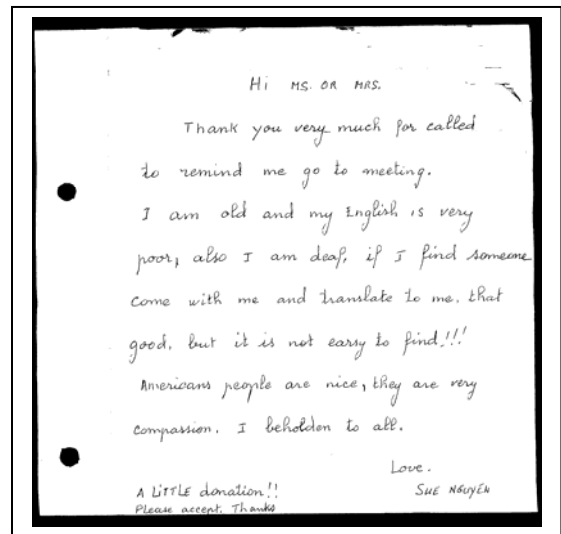 Hi MS. OR MRS.
Thank you very much for called
to remind me go to meeting.
I am old and my English is very
poor, also I am deaf, if I find someone
come with me and translate to me. that
good. but it is not earsy to find!!!
Americans people are nice, they are very
compassion. I beholden to all.
Love.
A LITTLE donation!!
SUE NGUYEN
Please accept. Thanks